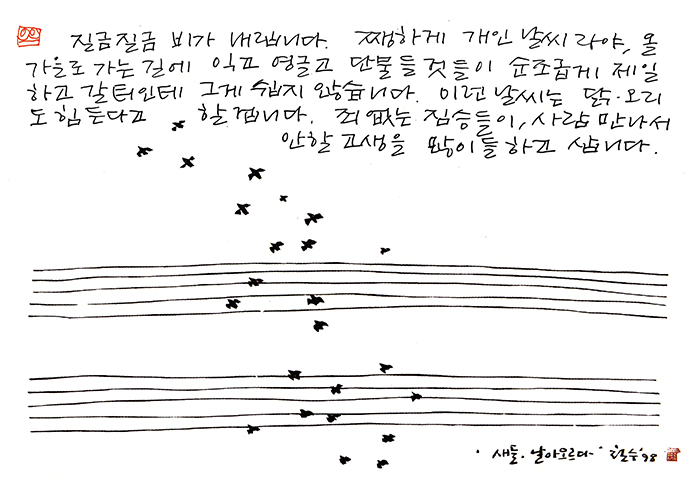 질금질금 비가 내립니다. 쨍하게 개인 날씨라야, 올
가을로 가는 길에 익고 영글고 단물들 것들이 순조롭게 제일
하고 갈 터인데 그게 쉽지 않습니다. 이런 날씨는 닭·오리
도 힘든다고 할 겁니다. 죄 없는 짐승들이, 사람 만나서
안할 고생을 많이들 하고 삽니다.
'새들·날아오르다' 철수 '98